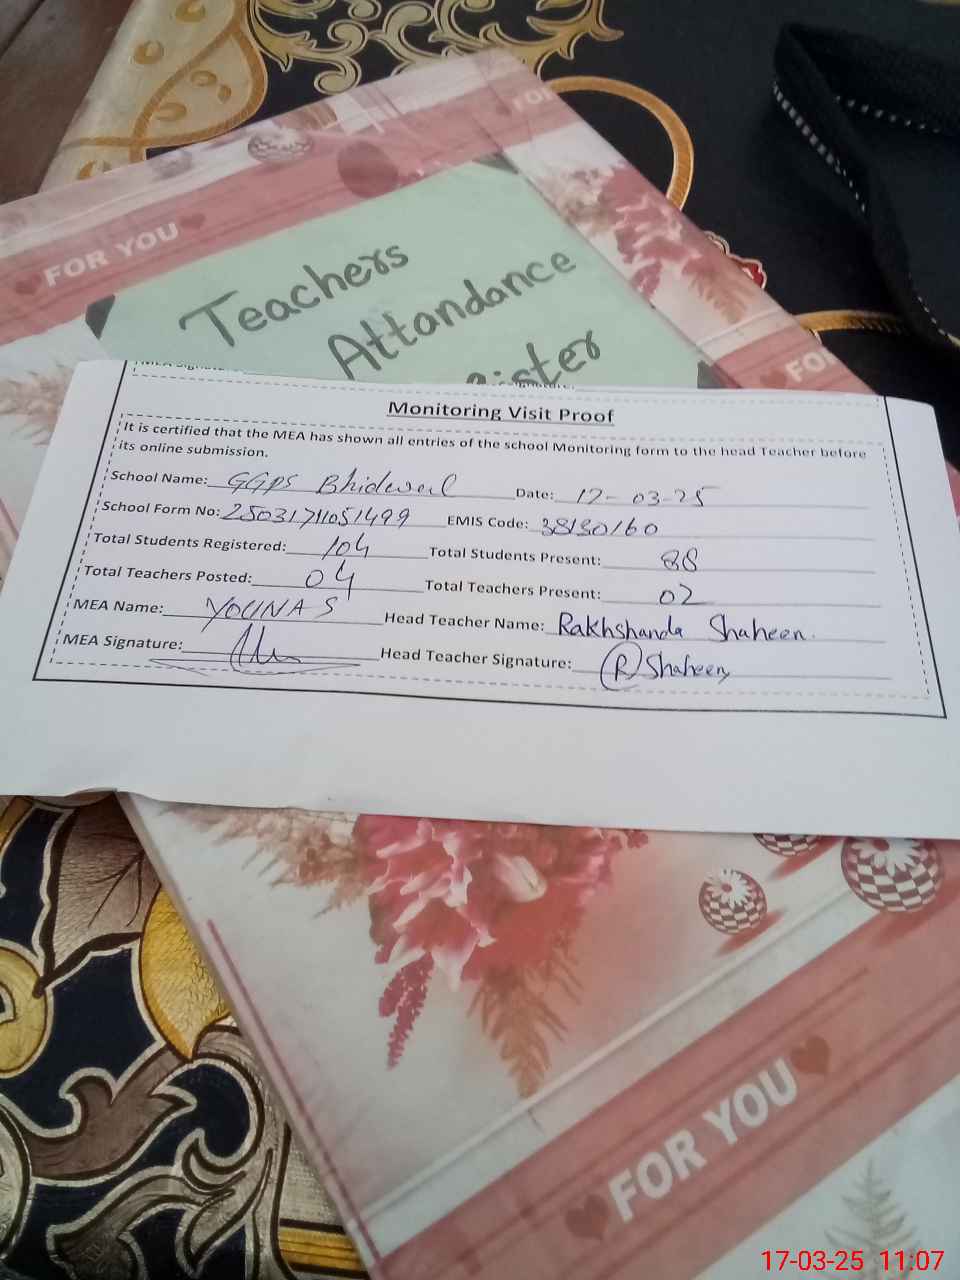 FOR
FOR YOU
Teachers
Attandance
ister
FOR
Monitoring Visit Proof
It is certified that the MEA has shown all entries of the school Monitoring form to the head Teacher before
its online submission.
School Name: GGPS Date: 17-03-25
School Form No: 25031711051499 EMIS Code: 38130160
Total Students Registered: 104 Total Students Present: 88
Total Teachers Posted: 04 Total Teachers Present: 02
MEA Name: YOUNAS Head Teacher Name: Rakhshanda Shaheen.
MEA Signature: Head Teacher Signature: R Shaheen
FOR YOU
17-03-25 11:07